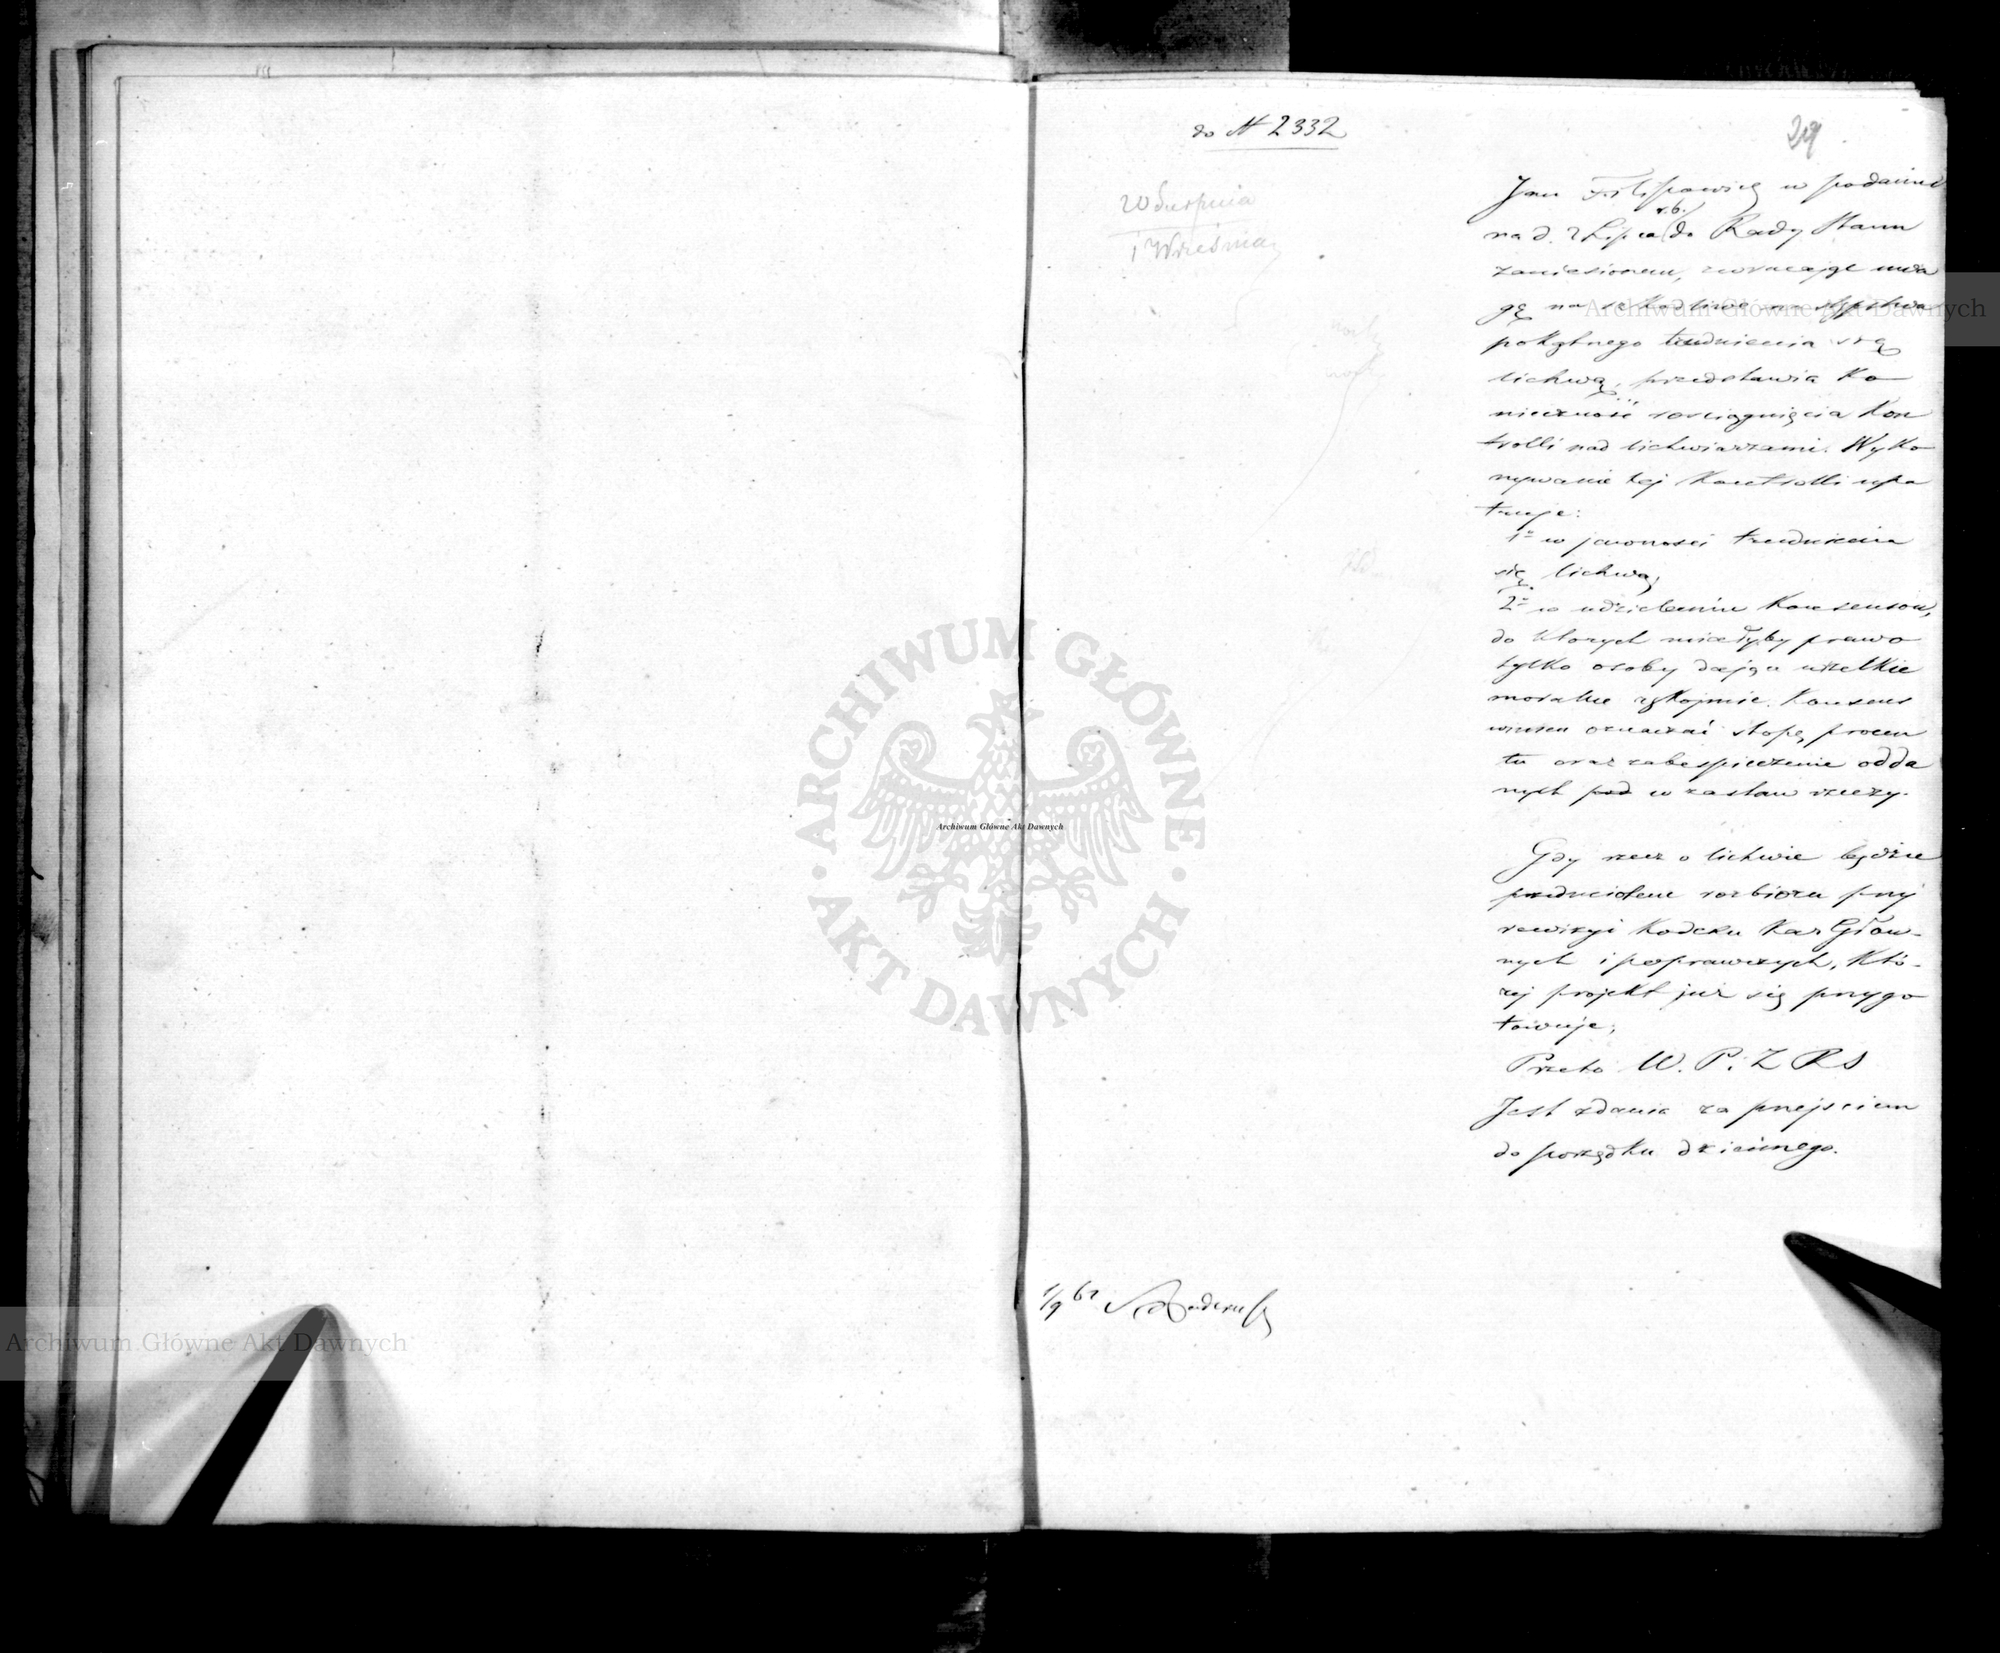 do N 2332
29
20 Sierpnia
1 Września
Jan Filipowicz w podaniu
r. b.
na d. 2 Lipca do Rady Stanu
zaniesionem, zwracając uwa
gę na szkodliwe następstwa
pokątnego trudnienia się
lichwą, przedstawia Ko-
nieczność rozciągnięcia Kon
trolli nad lichwiarzami. Wyko-
nywanie tej Kontrolli upa
truje:
1º w jawności trudnienia
się lichwą,
2º w udzieleniu Konsensów,
do których miałyby prawo
tylko osoby dające wszelkie
moralne rękojmie. Konsens
winien oznaczać stopę procen
tu oraz zabespieczenie odda
nych pod w zastaw rzeczy.
Gdy rzecz o lichwie będzie
przedmiotem rozbioru przy
rewizyi Kodexu Kar Głów-
nych i poprawczych, Któ-
rej projekt już się przygo
towuje;
Przeto W. P. Z RS
Jest zdania za przejściem
do porządku dziennego.
1/9 62
Archiwum Główne Akt Dawnych
Archiwum Główne Akt Dawnych
Archiwum Główne Akt Dawnych
ARCHIWUM GŁÓWNE AKT DAWNYCH